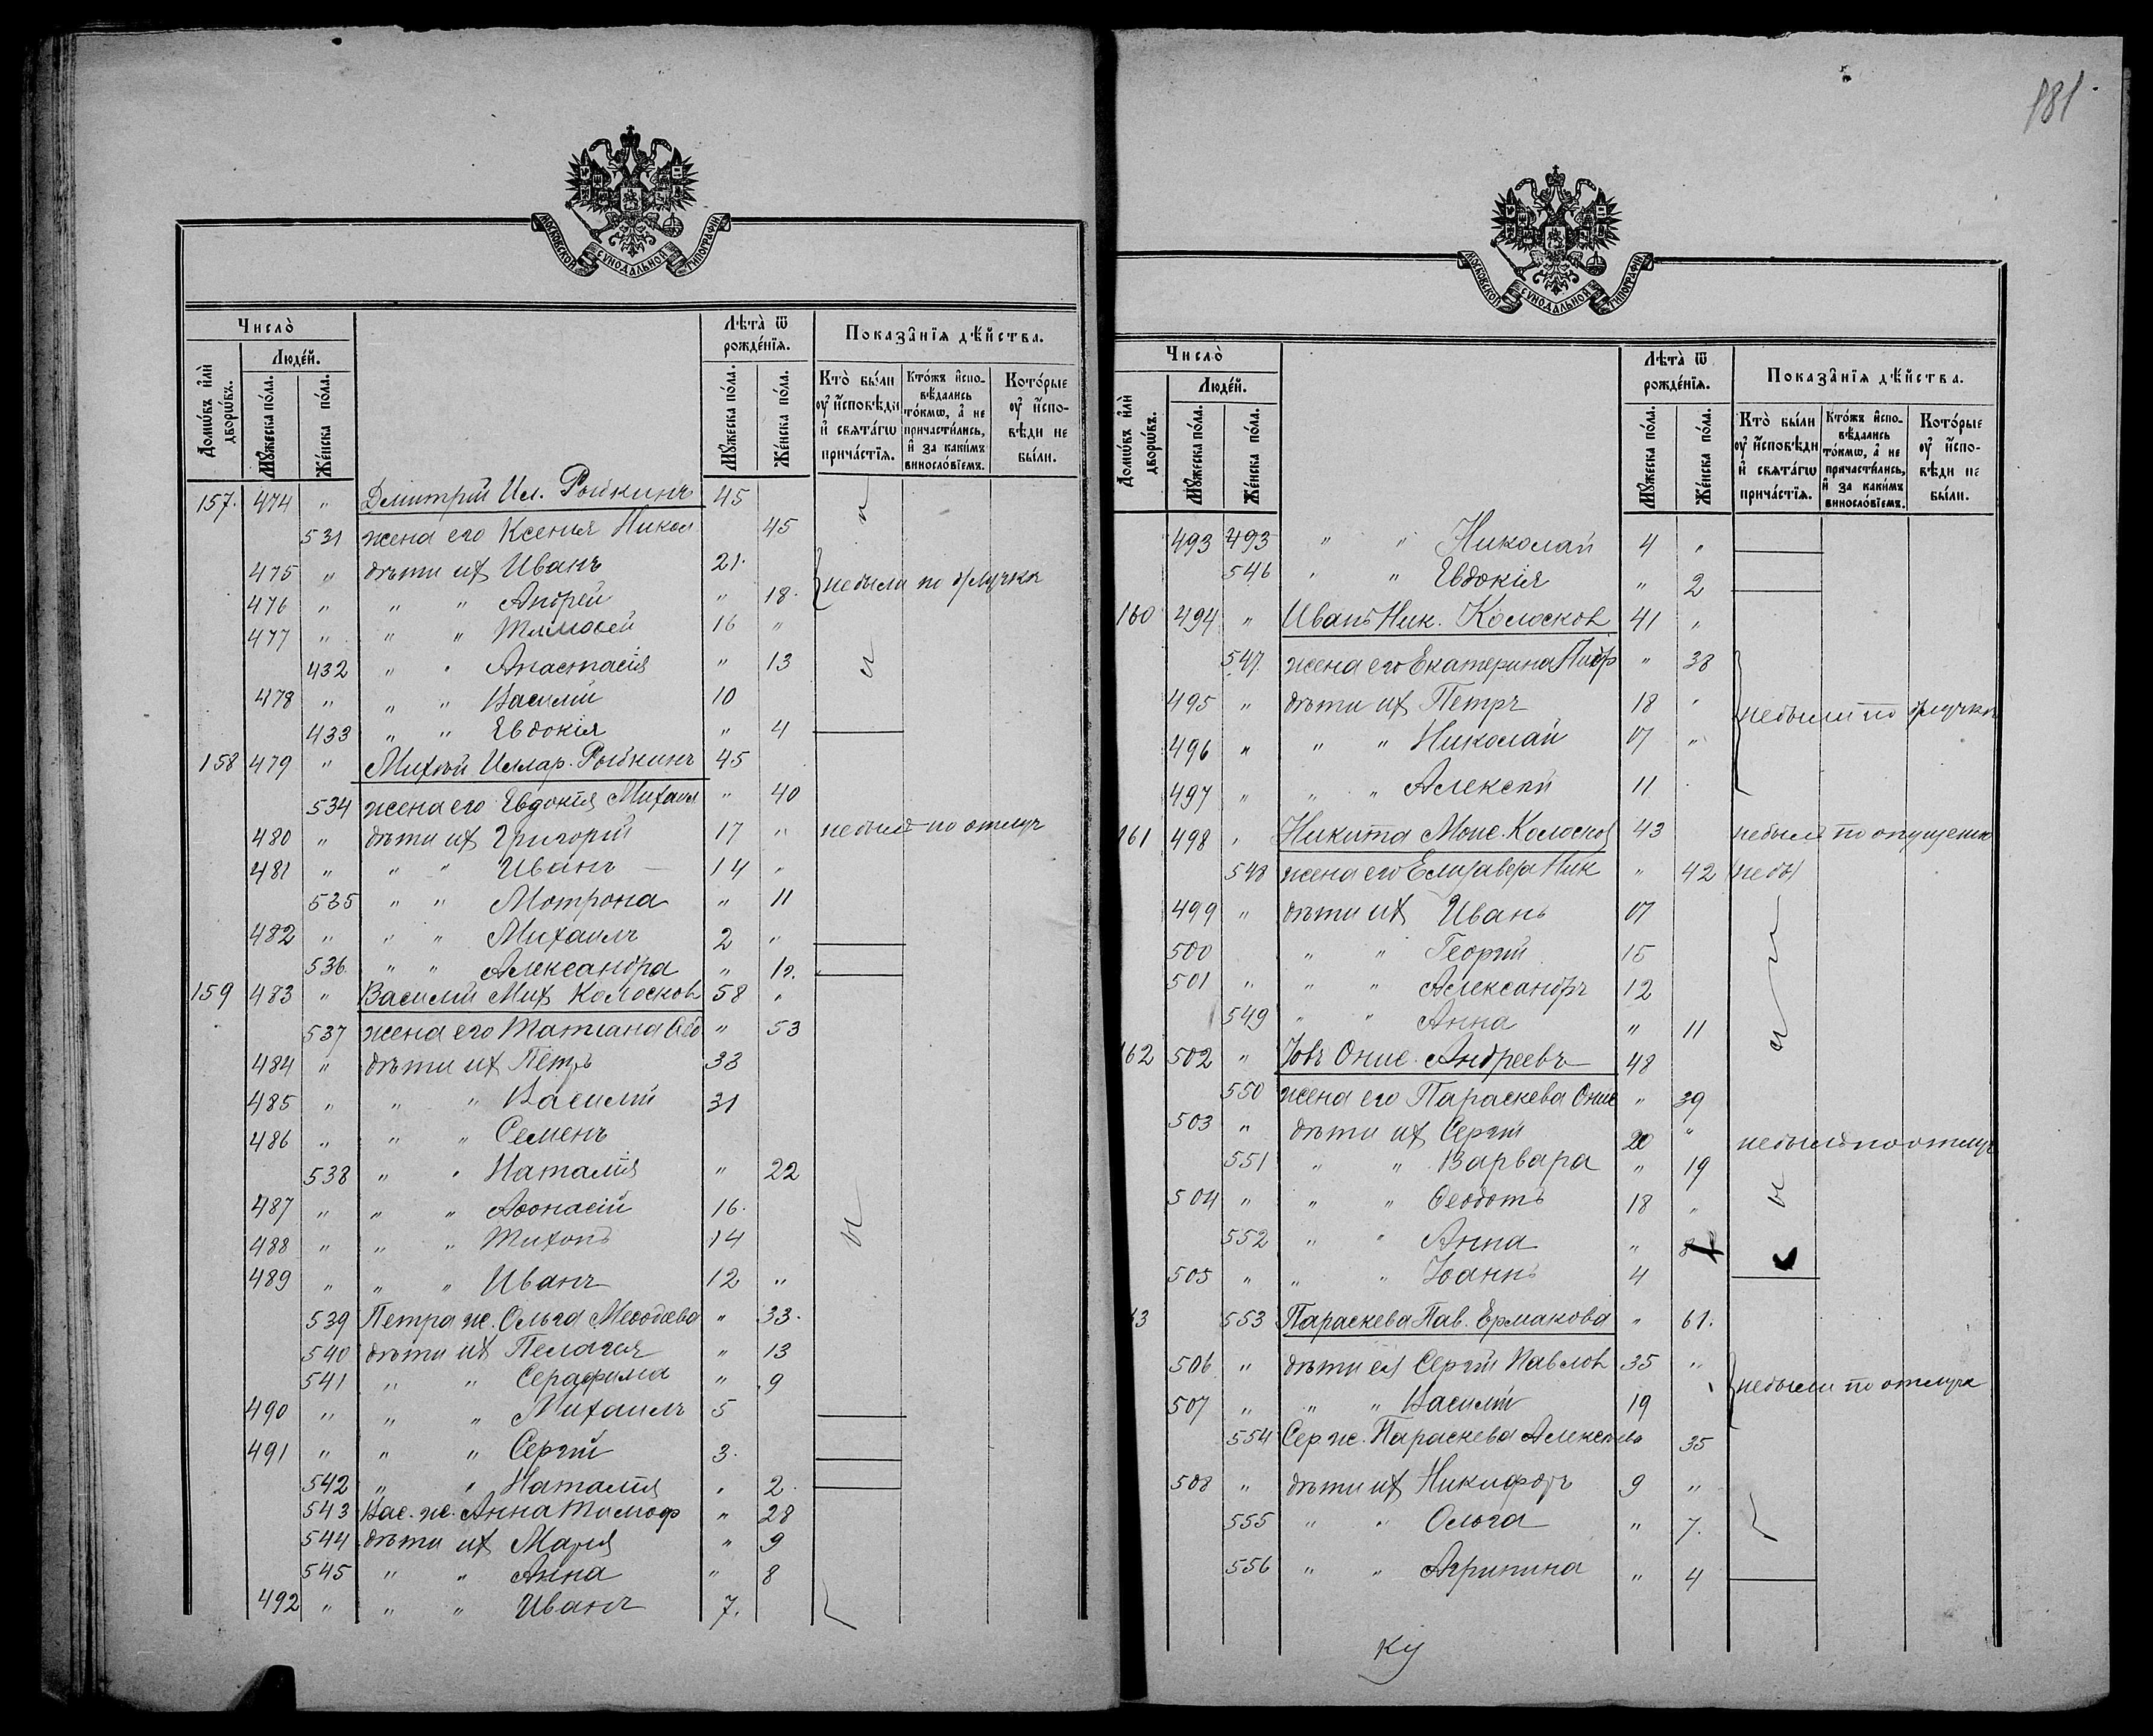 181.
МОСКОВСКОЙ СѴНОДАЛЬНОЙ ТИПОГРАФІИ
Число̀
Людéй.
Домѡ́въ и҆лѝ дворѡ́въ.
Мꙋ́жеска по́ла.
Же́нска по́ла.
Лѣ́та̀ ѿ рожде́нїѧ.
Мꙋ́жеска по́ла.
Же́нска по́ла.
Показа̑нїѧ дѣ́йства.
Кто̀ бы́ли оу҆ и҆́сповѣди и҆ свѧта́гѡ прича́стїѧ.
Кто́жъ и҆спо-вѣ́дались то́кмѡ, а҆ не причасти́лись, и҆ за каки́мъ виносло́вїемъ.
Кото́рые оу҆ и҆́спо-вѣди не бы́ли.
157. 474 " Дмитрій Ил. Рыбкинъ 45
531 жена его Ксенія Никол 45
475 " дѣти их Иванъ 21.
476 " " " Андрей " 18. не были по отлучкѣ
477 " " " Тимофей 16 "
432 " " Анастасія " 13
478 " " " Василій 10
433 " " Евдокія " 4
158 479 " Михѣй Иллар. Рыбкинъ 45
534 жена его Евдокія Михаил " 40
480 " дѣти их Григорій 17 " не былъ по отлуч
481 " " " Иванъ 14 "
535 " " Мотрона " 11
482 " " " Михаилъ 2 "
536 " " Александра " 12.
159 483 " Василій Мих Колосков 58 "
537 жена его Татіана Ѳео " 53
484 " дѣти их Петръ 33
485 " " " Василій 31
486 " " " Семенъ
538 " " Наталія " 22
487 " " " Аѳонасій 16.
488 " " " Тихонъ 14
489 " " " Иванъ 12 "
539 Петра ж. Ольга Меѳодіева " 33.
540 дѣти их Пелагея " 13
541 " " Серафима " 9
490 " " " Михаилъ 5
491 " " " Сергій 3.
542 " " Наталія " 2.
543 Вас. ж. Анна Тимоф " 28
544 дѣти их Марія " 9
545 " " Анна " 8
492 " " " Иванъ 7.
МОСКОВСКОЙ СѴНОДАЛЬНОЙ ТИПОГРАФІИ
Число̀
Людéй.
Домѡ́въ и҆лѝ дворѡ́въ.
Мꙋ́жеска по́ла.
Же́нска по́ла.
Лѣ́та̀ ѿ рожде́нїѧ.
Мꙋ́жеска по́ла.
Же́нска по́ла.
Показа̑нїѧ дѣ́йства.
Кто̀ бы́ли оу҆ и҆́сповѣди и҆ свѧта́гѡ прича́стїѧ.
Кто́жъ и҆спо-вѣ́дались то́кмѡ, а҆ не причасти́лись, и҆ за каки́мъ виносло́вїемъ.
Кото́рые оу҆ и҆́спо-вѣди не бы́ли.
493 493 " " Николай 4 "
546 " " Евдокія " 2
160 494 " Иванъ Ник. Колосков 41 "
547. жена его Екатерина " 38
495 " дѣти их Петръ 18 " не были по отлучкѣ
496 " " " Николай 17 "
497 " " " Алексѣй 11
161 498 " Никита Моис. Колосков 43 не былъ по опущенію
548 жена его Елизавета Ник " 42
499 " дѣти их Иванъ 17
500 " " Георгій 15
501 " " " Александръ 12
549 " " Анна " 11
162 502 " Іовъ Онис. Андреевъ 48
550 жена его Параскева Онис " 39
503 " дѣти их Сергій 20 " не былъ по отлуч
551 " " Варвара " 19
504 " " " Ѳеодотъ 18 "
552 " " Анна " 8
505 " " " Іоаннъ 4
63 553 Параскева Пав. Ермакова " 61.
506 " дѣти ея Сергій Павлов 35 " не были по отлучк
507 " " " Василій 19
554 Сер ж. Параскева 35
508 " дѣти их Никифоръ 9 "
555 " " Ольга " 7.
556 " " Агрипина " 4
ку